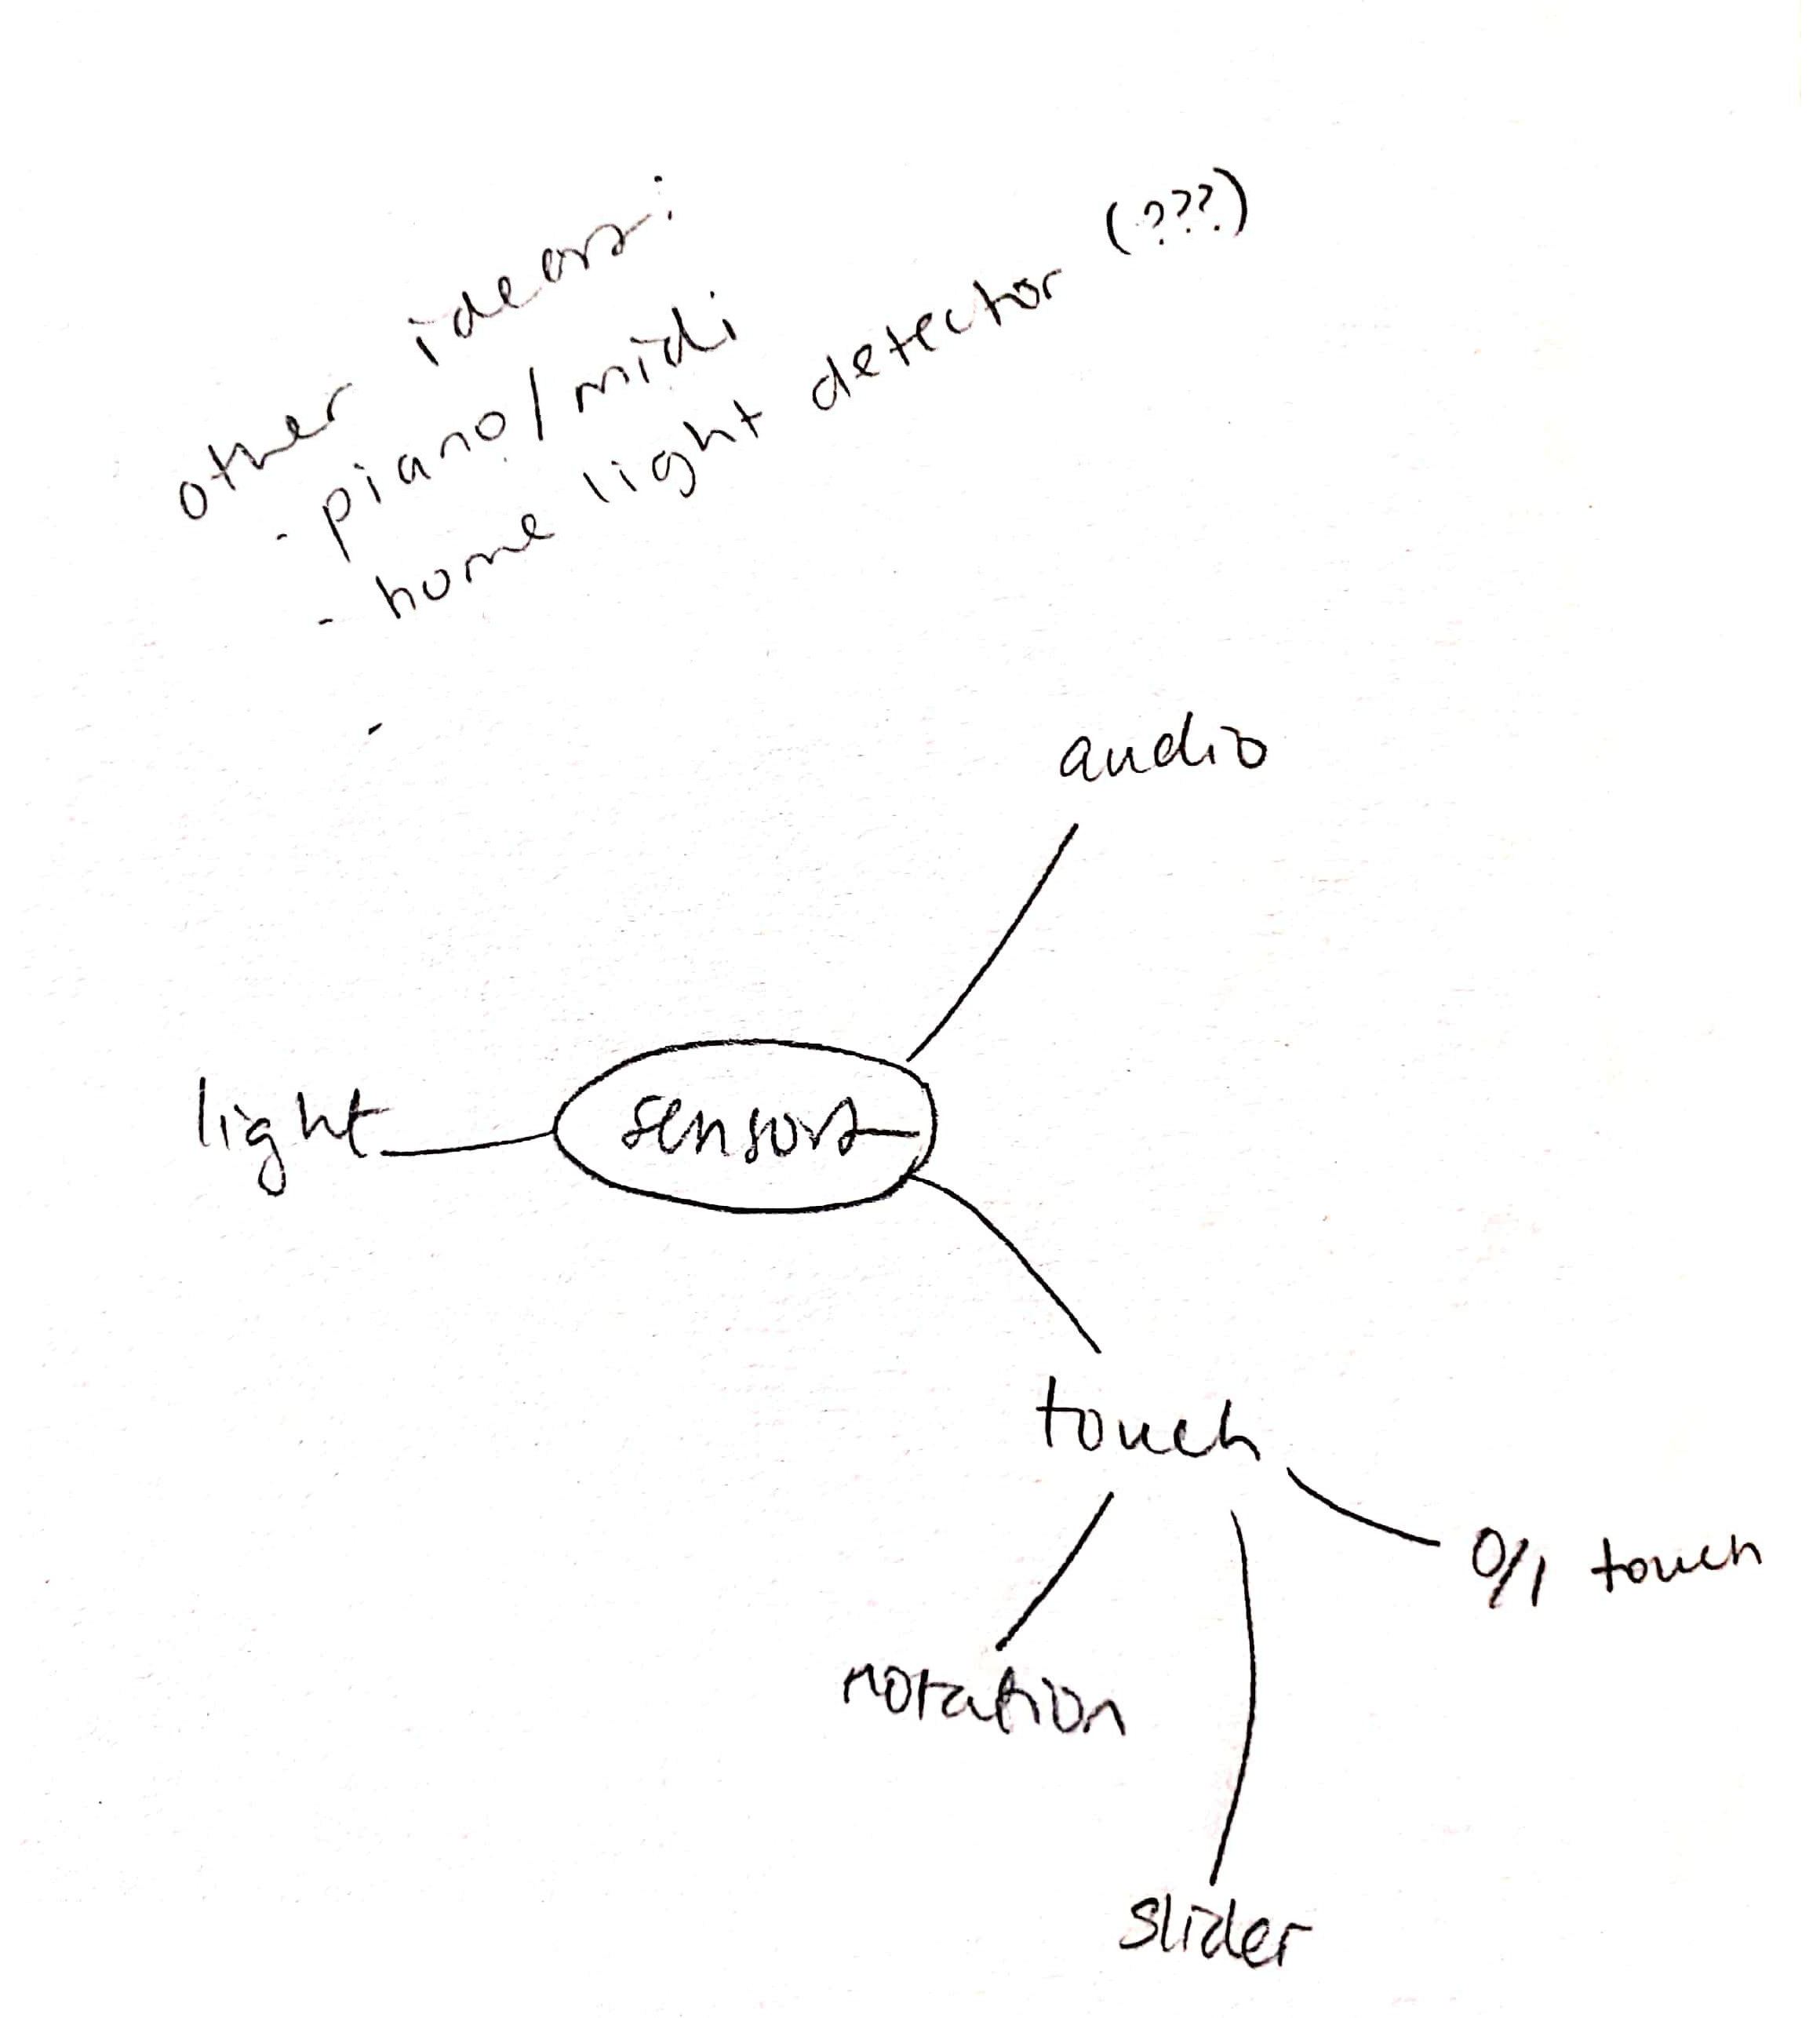 other ideas:
- piano/midi
- home light detector (???)
-
audio
light
sensors
touch
0/1 touch
rotation
slider